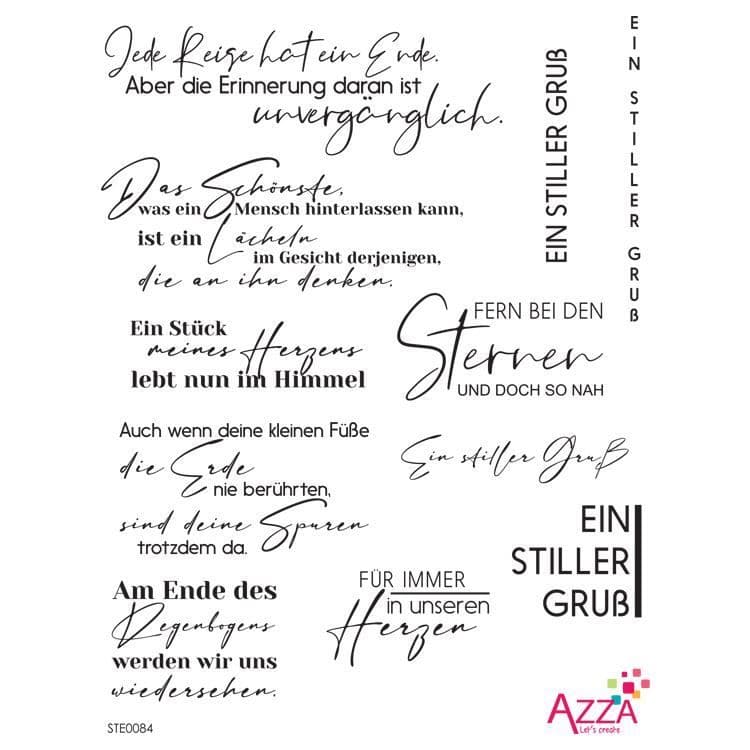 Jede Reise hat ein Ende.
Aber die Erinnerung daran ist
unvergänglich.
EIN STILLER GRUß
EIN STILLER GRUß
Das Schönste,
was ein Mensch hinterlassen kann,
ist ein Lächeln
im Gesicht derjenigen,
die an ihn denken.
Ein Stück
meines Herzens
lebt nun im Himmel
FERN BEI DEN
Sternen
UND DOCH SO NAH
Auch wenn deine kleinen Füße
die Erde
nie berührten,
sind deine Spuren
trotzdem da.
Ein stiller Gruß
EIN
STILLER
GRUß
Am Ende des
Regenbogens
werden wir uns
wiedersehen.
FÜR IMMER
in unseren
Herzen
STE0084
AZZA
Let's create